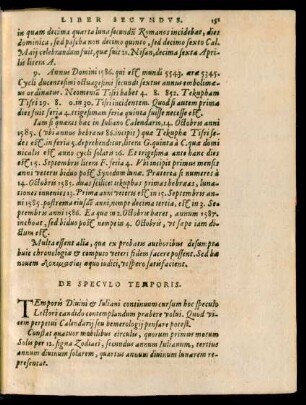 LIBER SECVNDVS. 158
in quam decima quarta luna secundū Romanos incidebat, dies
dominica, sed pascha non decimo quinto, sed decimo sexto Cal.
Maij celebrandum fuit, quæ fuit 21. Nisan, decima sexta Aprilis
litera A.
9. Annus Domini 1586. qui est mundi 5343. aræ 5345.
Cycli ducentesimi octuagesimi secundi annus embolimæus
ordinatur. Neomenii Tisri habet 4. 8. 852. Tekupham
Tisri 29. 8. 0. in 30. Tisri incidentem. Quod si autem prima
dies fuit feria 4. trigesimam feria quinta fuisse necesse est.
Iam si quæras hæc in Solari Calendario, 14. Octobris anni
1585. (vbi annus hebræus 86. incipit) quæ Tekuphæ Tisri sedes
est in feria 5. deprehenditur, litera G. quinta à C. qua domini
cæ est anno cycli solaris 26. Et trigesima ante hanc dies
est 15. Septembris litera F. feria 4. Vbi meriet primus mensis
anni veteris biduo post Synodum lunæ. Præterea si numeris à
14. Octobris 1585. duas scilicet tekuphas primas hebræas, lunationes
menses 13. prima veteris anni 1585. est in 12. Septembris anni
1585. postrema eiusdē anni, nempe decima tertia, est in 3. Septembris
anni 1586. Ea quæ in 2. Octobris hæret, annum 1587.
inchoat, sed biduo post nempe in 4. Octobris, vt sæpe iam dictum
est.
Multa essent alia, quæ ex probatis authoribus desumpta
huic chronologiæ & computo veteri fidem facere possent. Sed hæ
nouem δοκιμασίαι æquo iudici, vt spero satisfacient.
DE SPECVLO TEMPORIS.
Temporis Diuini & Iuliani continuum cursum hoc speculo
Lectori candido contemplandum præbere volui. Quod vicem
perpetui Calendarij seu hemerologij pensare potest.
Constat quatuor mobilibus circulis, quorum primus motum
Solis per 12. signa Zodiaci, secundus annum Iulianum, tertius
annum diuinum solarem, quartus annum diuinum lunarem repræsentat.